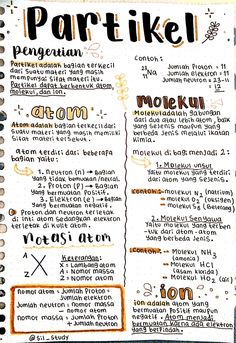 Partikel
Pengertian
Partikel adalah bagian terkecil
dari suatu materi yang masih
mempunyai sifat materi itu.
Partikel dapat berbentuk atom,
molekul, dan ion.
atom
Atom adalah bagian terkecil dari
suatu materi yang masih memiliki
sifat materi tersebut.
atom terdiri dari beberapa
bagian yaitu:
1. neutron (n) → Bagian
yang tidak bermuatan/netral.
2. Proton (p) → Bagian
yang bermuatan positif.
3. Elektron (e) → Bagian
yang bermuatan negatif.
Proton dan neutron terletak
di inti atom sedangkan elektron
terletak di kulit atom.
Notasi Atom
A
X
Z
Keterangan:
X : Lambang atom
A : Nomor massa
Z : Nomor atom
nomor atom = Jumlah Proton =
Jumlah elektron.
Jumlah neutron = nomor massa
- nomor atom
nomor massa = Jumlah Proton
+ Jumlah neutron
@sil_study
Contoh:
23
Na
11
Jumlah Proton = 11
Jumlah elektron = 11
Jumlah neutron = 23-11
= 12
Molekul
Molekul adalah gabungan
dari dua atau lebih atom, baik
yang sejenis maupun yang
berbeda jenis melalui ikatan
kimia.
Molekul dibagi menjadi 2:
1. Molekul unsur
Yaitu molekul yang terdiri
dari atom yang sejenis.
contoh: molekul N₂ (natrium)
molekul O₂ (oksigen)
2. Molekul Senyawa
Yaitu molekul yang terben
tuk dari atom-atom
yang berbeda jenis.
contoh: molekul NH₃
(amonia)
molekul HCl
(Asam Klorida)
molekul H₂O (air)
ion
ion adalah atom yang
bermuatan positif maupun
negatif. Atom menjadi
bermuatan karna ada elektron
yang berpindah.